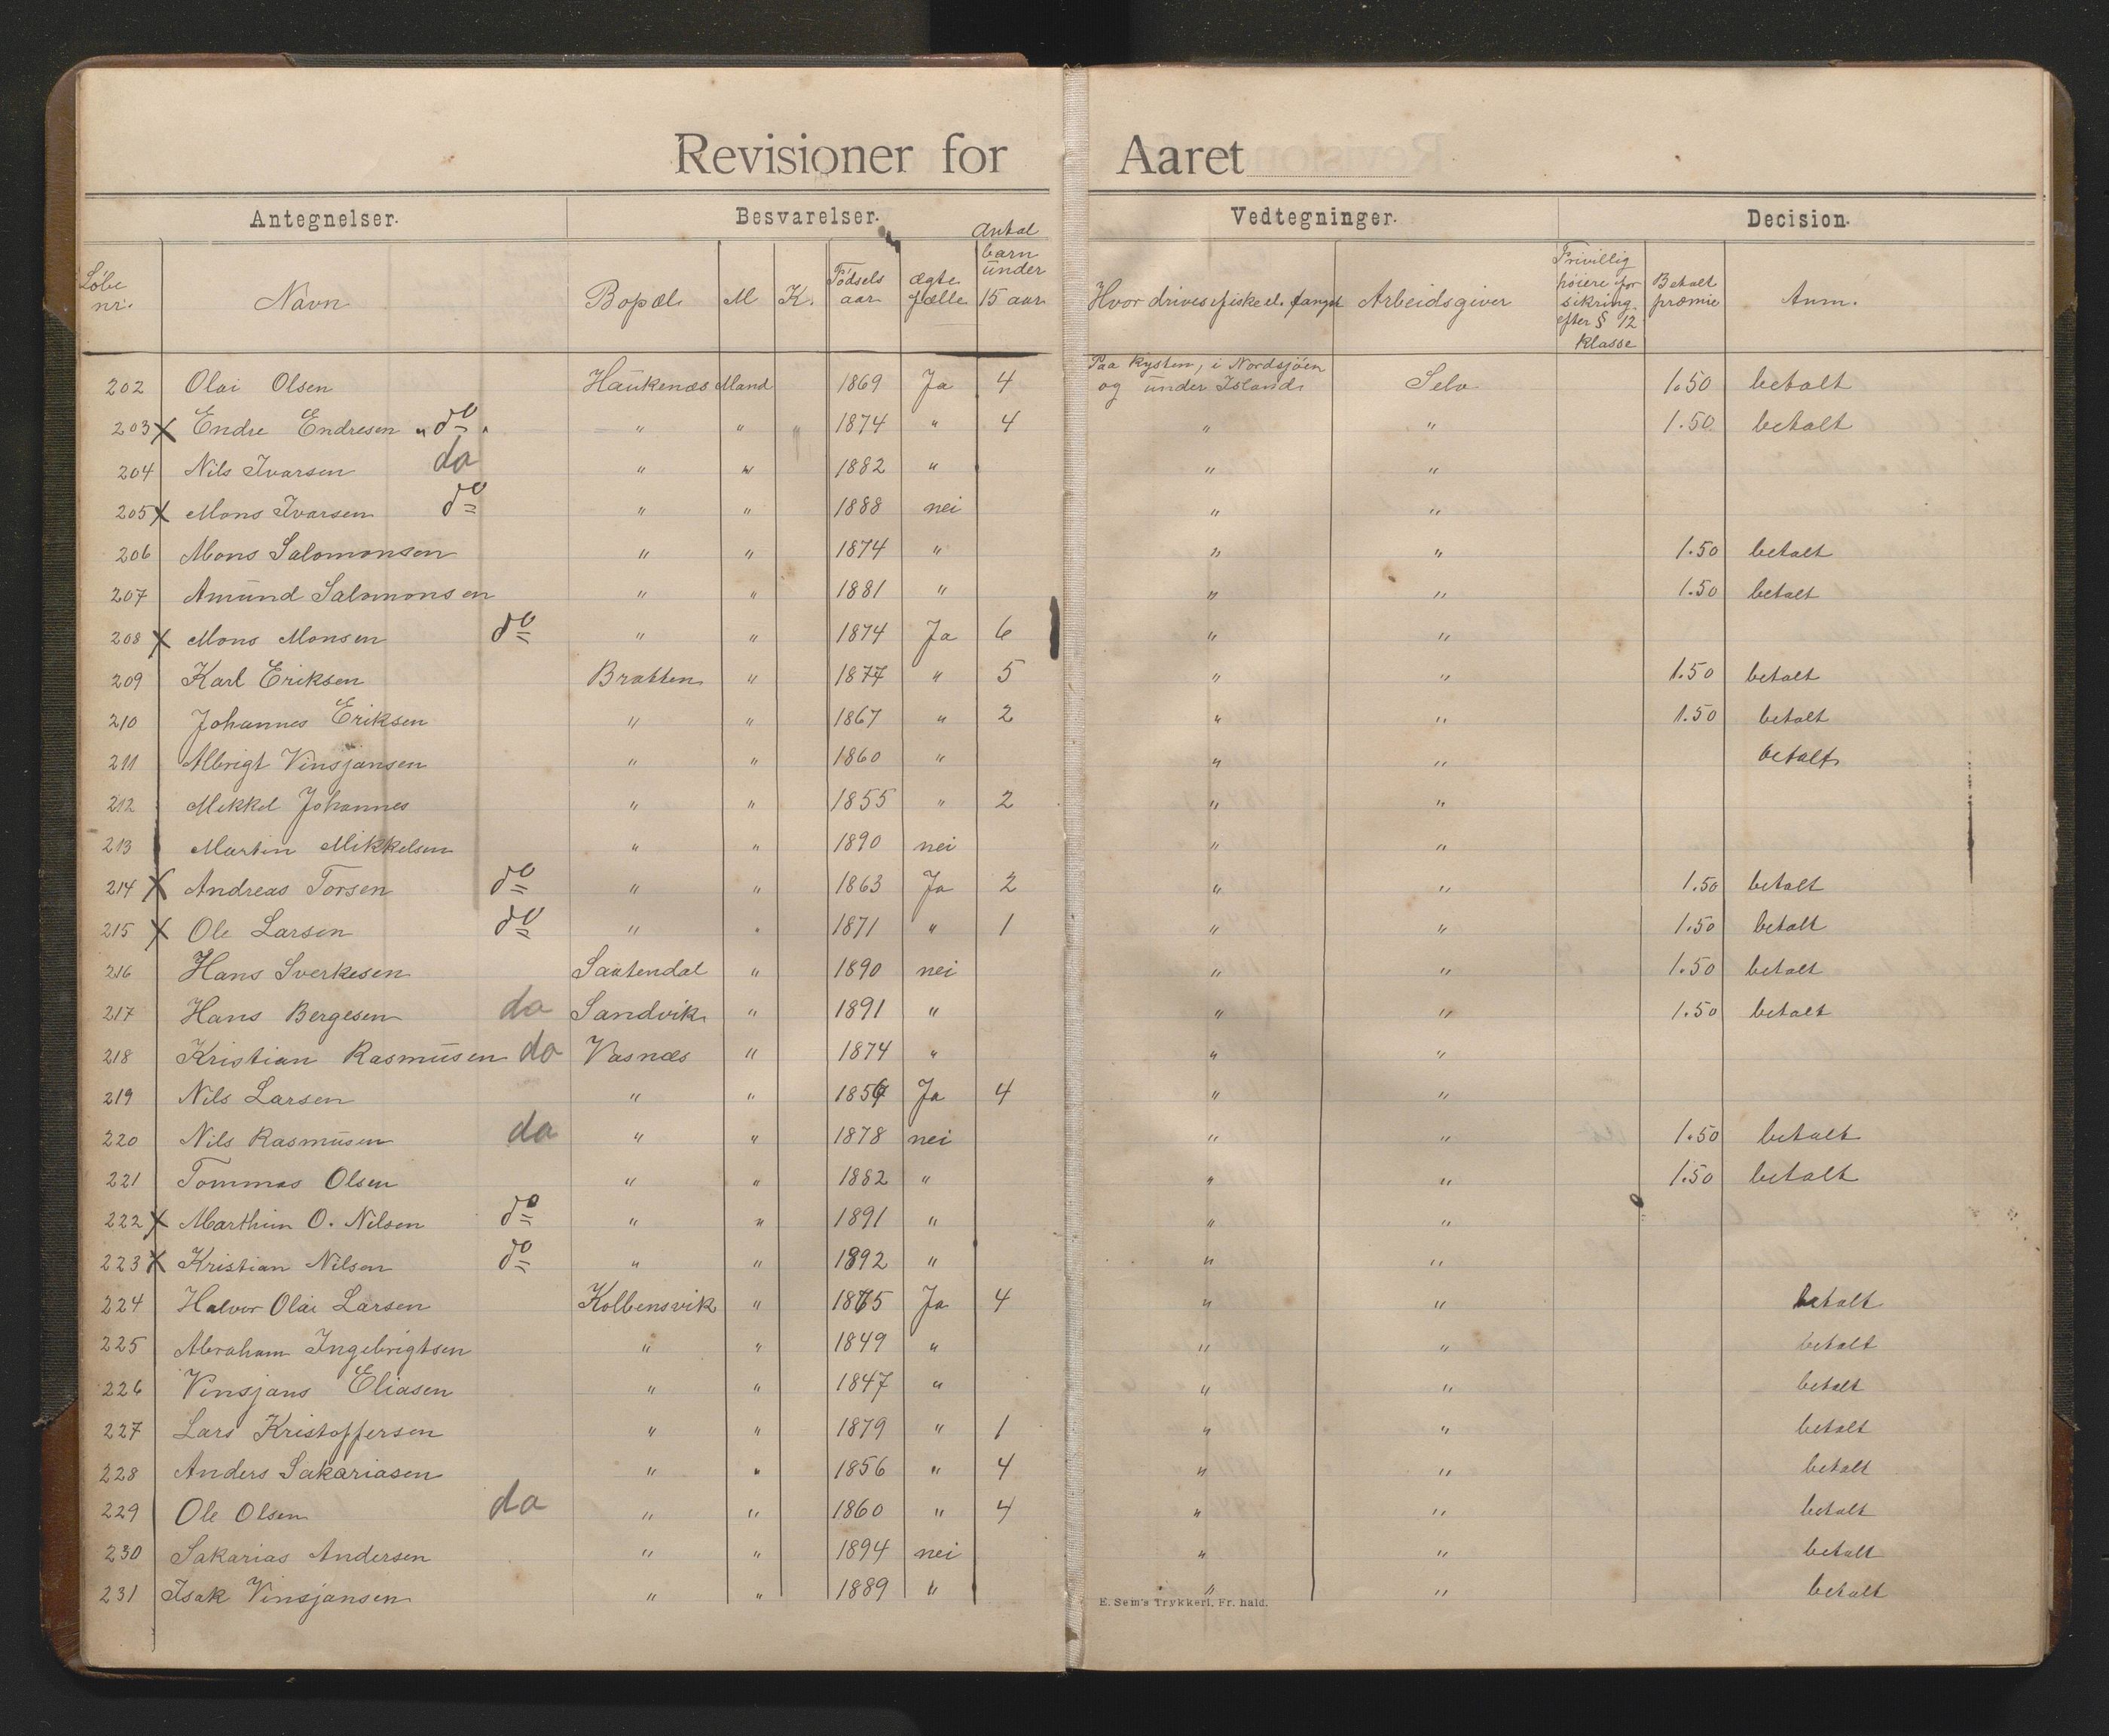 Revisioner for Aaret
Antegnelser. Besvarelser. Vedtegninger. Decision.
Løbe nr. Navn Bopæl. M K. Fødsels aar ægte fælle Antal barn under 15 aar Hvor drives fiske el. fangst Arbeidsgiver Frivillig høiere for sikring efter § 12 Klasse Betalt præmie Anm.
202 Olai Olsen Haukenæs Mand 1869 Ja 4 Paa kysten, i Nordsjöen og under Island. Selv 1.50 betalt
203 X Endre Endresen " do " " " " 1874 " 4 " " 1.50 betalt
204 Nils Ivarsen do " " 1882 " " "
205 X Mons Ivarsen do " " 1888 nei " "
206 Mons Salomonsen " " 1874 " " " 1.50 betalt
207 Amund Salomonsen " " 1881 " " " 1.50 betalt
208 X Mons Monsen do " " 1874 Ja 6 " "
209 Karl Eriksen Bratten " 1877 " 5 " " 1.50 betalt
210 Johannes Eriksen " " 1867 " 2 " " 1.50 betalt
211 Albrigt Vinsjansen " " 1860 " " " betalt
212 Mekkel Johannes " " 1855 " 2 " "
213 Martin Mikkelsen " " 1890 nei " "
214 X Andreas Torsen do " " 1863 Ja 2 " " 1.50 betalt
215 X Ole Larsen do " " 1871 " 1 " " 1.50 betalt
216 Hans Sverkesen Saatendal " 1890 nei " " 1.50 betalt
217 Hans Bergesen do Sandvik " 1891 " " " 1.50 betalt
218 Kristian Rasmusen do Vasnæs " 1874 " " "
219 Nils Larsen " " 185 Ja 4 " "
220 Nils Rasmusen do " " 1878 nei " " 1.50 betalt
221 Tommas Olsen " " 1882 " " " 1.50 betalt
222 X Marthin O. Nilsen do " " 1891 " " "
223 X Kristian Nilsen do " " 1892 " " "
224 Halvor Olai Larsen Kolbensvik " 1865 Ja 4 " " betalt
225 Abraham Ingebrigtsen " " 1849 " " " betalt
226 Vinsjans Eliasen " " 1847 " " " betalt
227 Lars Kristoffersen " " 1879 " 1 " " betalt
228 Anders Sakariasen " " 1856 " 4 " " betalt
229 Ole Olsen do " " 1860 " 4 " " betalt
230 Sakarias Andersen " " 1894 nei " " betalt
231 Isak Vinsjansen " " 1889 " " " betalt
E. Sem's Trykkeri, Fr. hald.